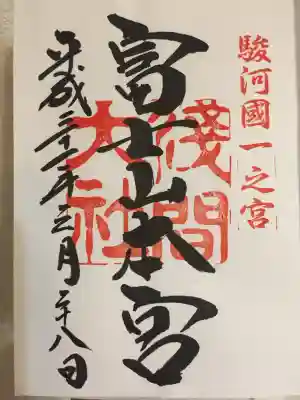 駿河國一之宮
富士山本宮
淺間
大社
平成 年 月二十八日